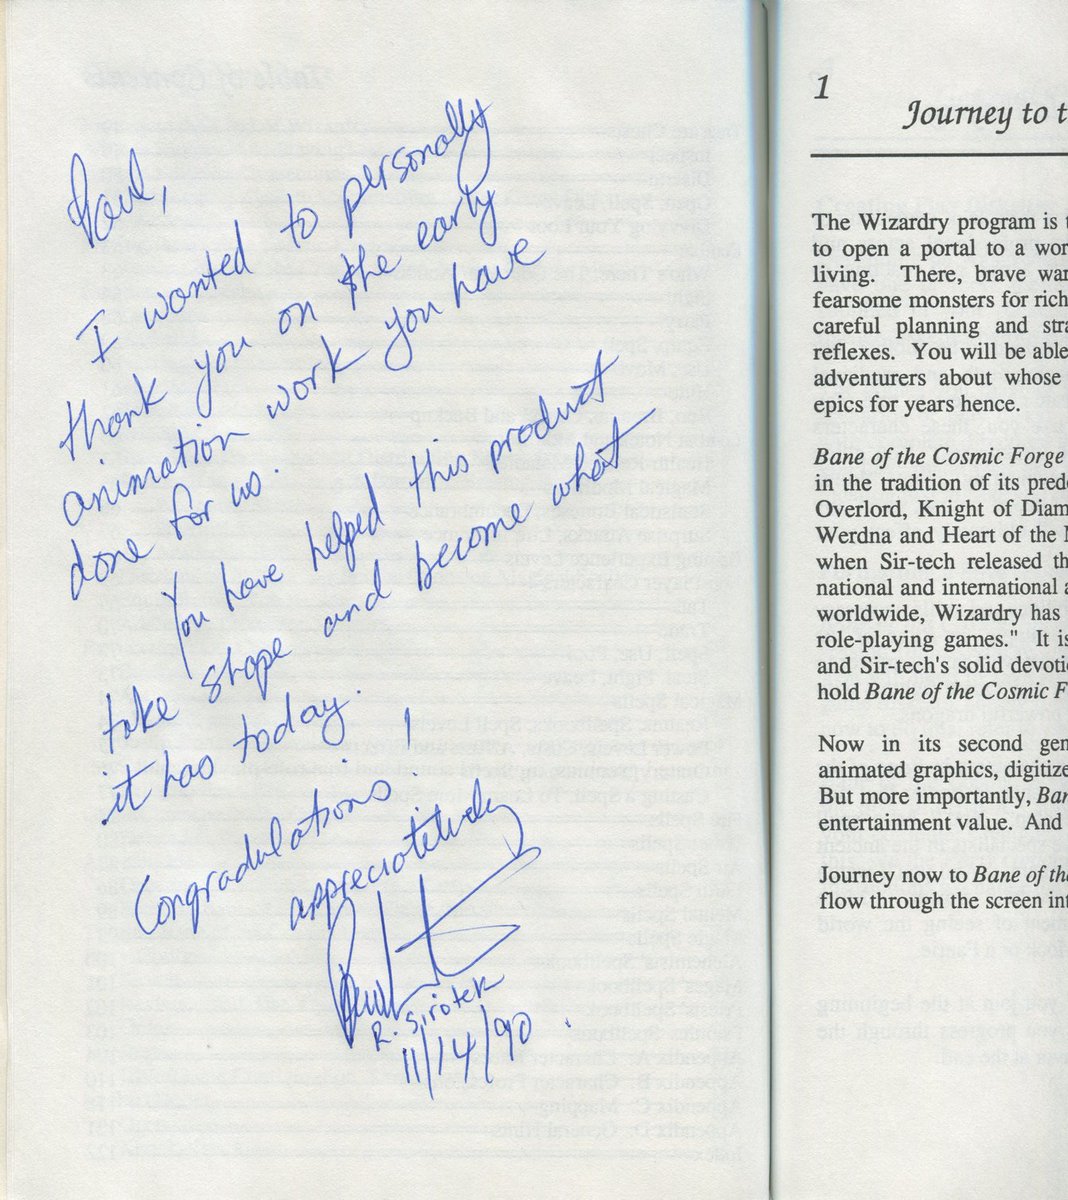 Paul,
I wanted to personally
thank you on the early
animation work you have
done for us.
You have helped this product
take shape and become what
it has today.
Congradulations!
appreciatively
R. Sirotek
11/14/90.
1
Journey to t
The Wizardry program is t
to open a portal to a wor
living. There, brave war
fearsome monsters for rich
careful planning and stra
reflexes. You will be able
adventurers about whose
epics for years hence.
Bane of the Cosmic Forge
in the tradition of its prede
Overlord, Knight of Diam
Werdna and Heart of the M
when Sir-tech released th
national and international a
worldwide, Wizardry has
role-playing games." It is
and Sir-tech's solid devotio
hold Bane of the Cosmic F
Now in its second gen
animated graphics, digitize
But more importantly, Ban
entertainment value. And
Journey now to Bane of the
flow through the screen int